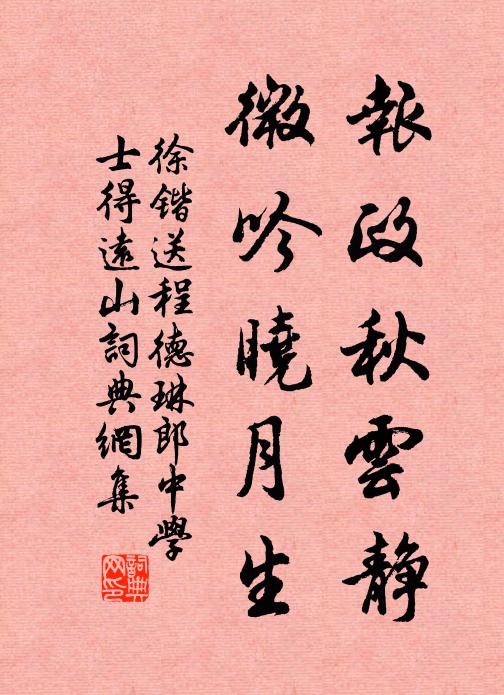 報政秋雲静
微吟曉月生
徐鍇送程德琳郎中學
士得遠山詞典網集
詞典网印